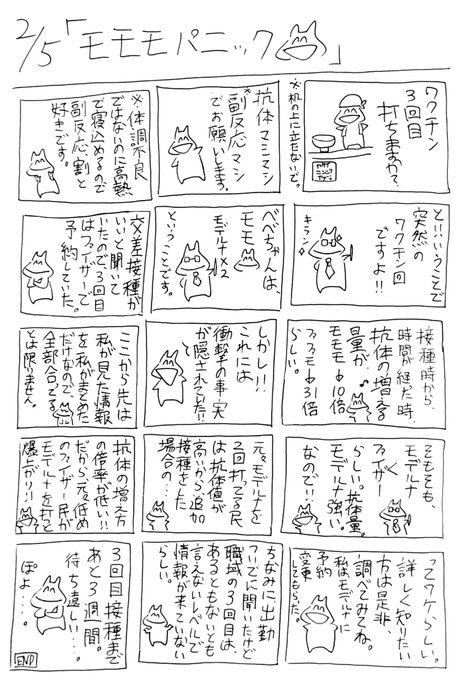 2/5「モモモパニック」
ワクチン
3回目
打ちますか?
※机の上に立たないで。
抗体マシマシ
副反応マシ※
でお願いします。
※体調不良
ではないのに高熱
で寝込めるので
副反応割と
好きです。
と!!!いうことで
突然の
ワクチン回
ですよ!!
キラン
べべちゃんは、
モモモ
モデルナ×2
ということです。
交差接種が
いいと聞いて
いたので3回目
はファイザーで
予約していた。
接種時から、
時間が経った時、
抗体の増える
量が、
モモモ→10倍
ファファモ→31倍
らしい。
しかし!!
これには
衝撃の事実
が隠されていた!!
ここから先は
私が見た情報
を私がまとめた
だけなので
全部合ってる
とは限りません。
そもそも、
モデルナ
>
ファイザー
らしい。抗体量。
モデルナ強い。
なので!!
元々モデルナを
2回打ってる民
は抗体値が
高いから追加
接種をした
場合の
抗体の増え方
の倍率が低い!!
だから元々低め
のファイザー民が
モデルナを打つと
爆上がり!!
ってワケらしい。
詳しく知りたい
方は是非、
調べてみてね。
私はモデルナに
予約
変更
してもらった。
ちなみに出勤
ついでに聞いたけど
職域の3回目は、
あるともないとも
言えないレベルで
情報が来ていない
らしい。
3回目接種まで
あと3週間。
待ち遠しい…。
ぽよ…。
END